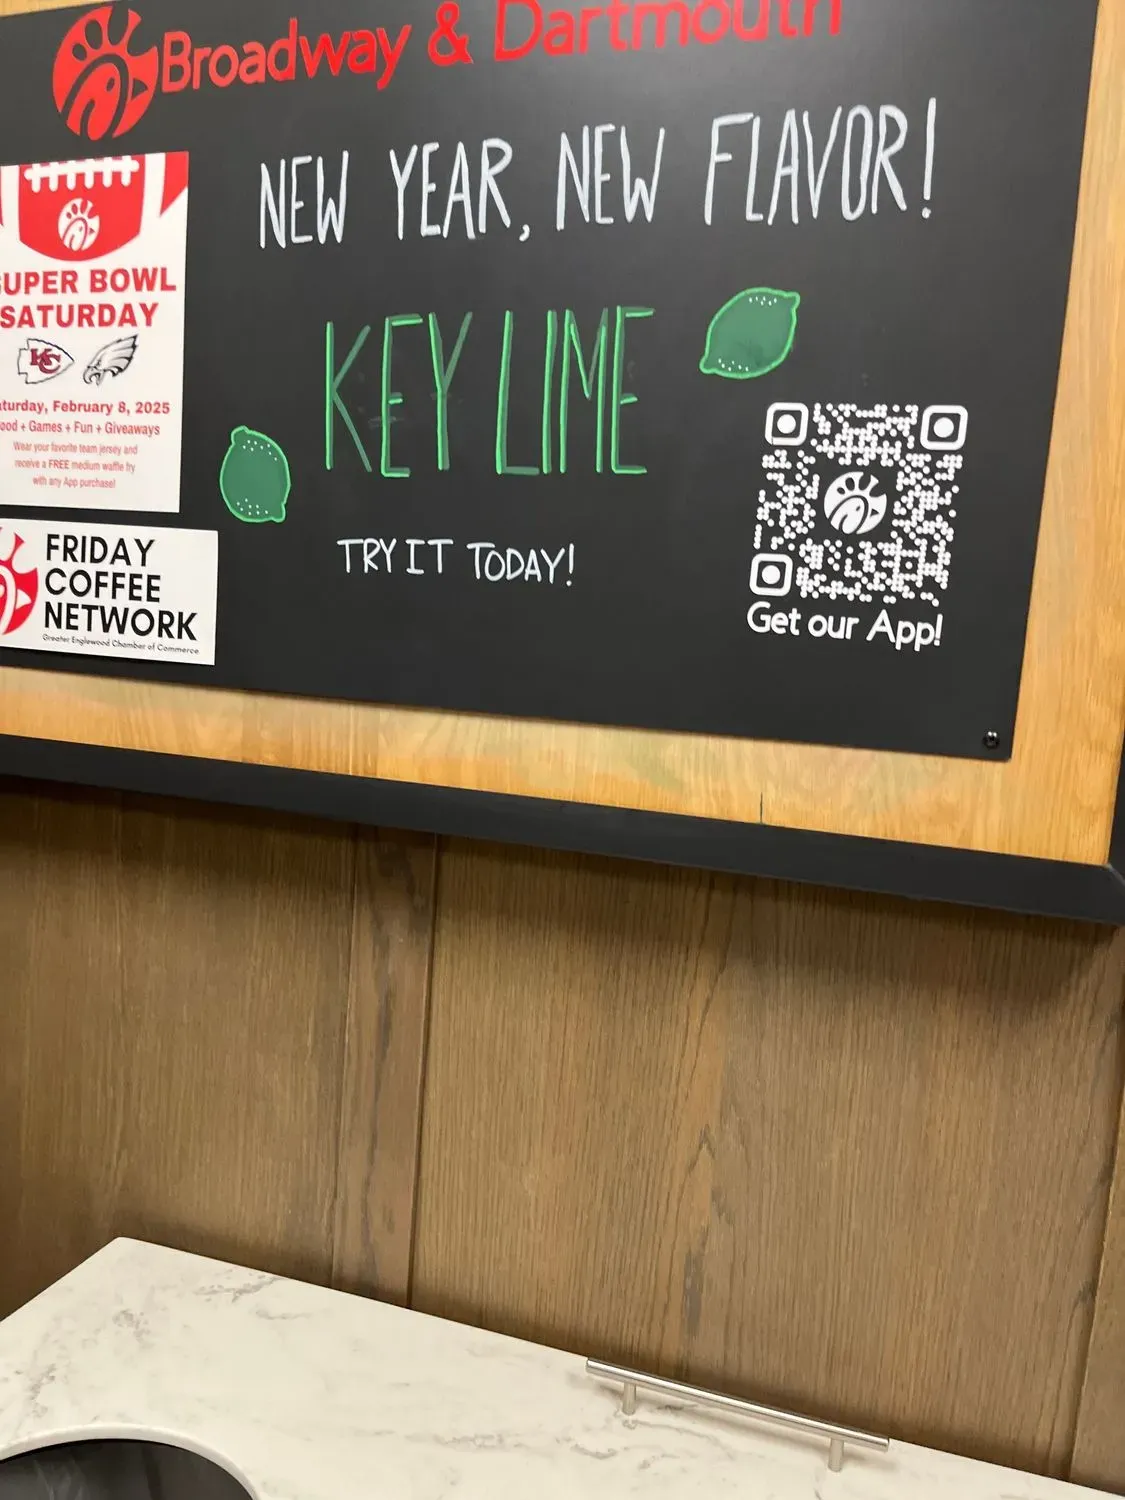 Broadway & Dartmouth
NEW YEAR, NEW FLAVOR!
KEY LIME
TRY IT TODAY!
Get our App!
SUPER BOWL
SATURDAY
KC
Saturday, February 8, 2025
Food + Games + Fun + Giveaways
Wear your favorite team jersey and
receive a FREE medium waffle fry
with any App purchase!
FRIDAY
COFFEE
NETWORK
Greater Englewood Chamber of Commerce